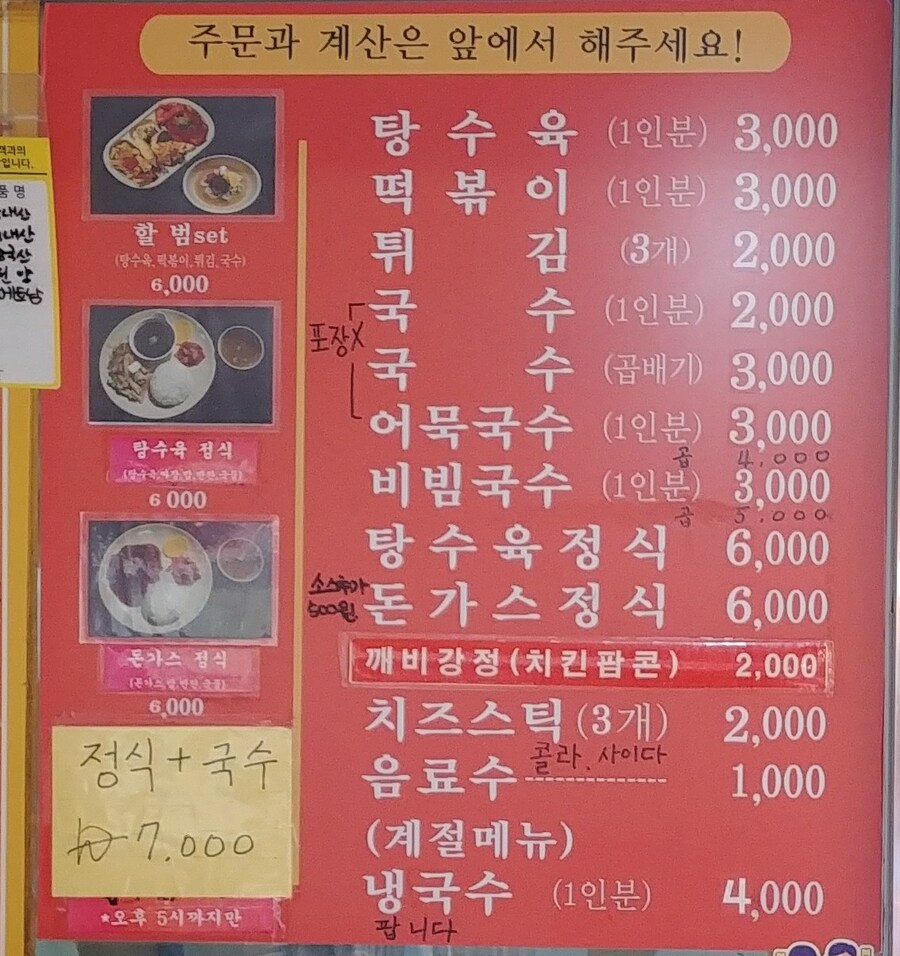 주문과 계산은 앞에서 해주세요!
탕수육 (1인분) 3,000
떡볶이 (1인분) 3,000
튀김 (3개) 2,000
국수 (1인분) 2,000
포장X
국수 (곱배기) 3,000
어묵국수 (1인분) 3,000
곱 4.000
비빔국수 (1인분) 3,000
곱 5.000
탕수육정식 6,000
소스추가
500원
돈가스정식 6,000
깨비강정(치킨팝콘) 2,000
치즈스틱(3개) 2,000
콜라. 사이다
음료수 1,000
(계절메뉴)
냉국수 (1인분) 4,000
팝니다
할범set
(탕수육,떡볶이,튀김,국수)
6,000
탕수육 정식
6 000
돈가스 정식
6,000
정식+국수
₩7.000
*오후 5시까지만
객과의
입니다.
품 명